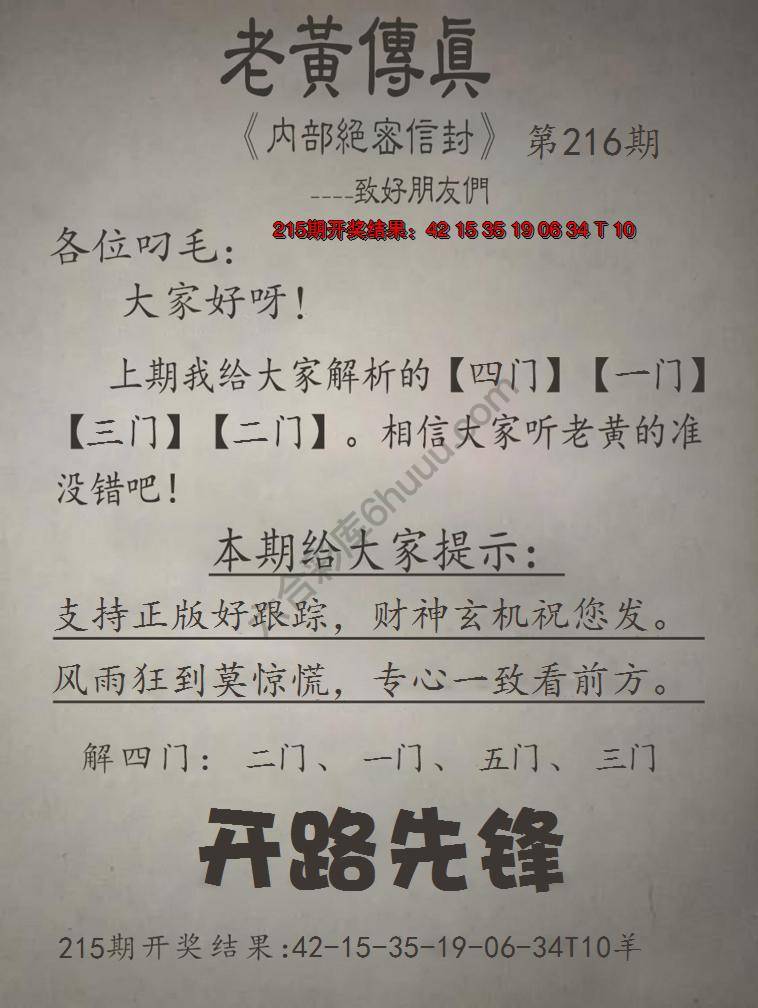 老黃傳眞
《内部絕密信封》 第216期
----致好朋友們
215期开奖结果：42 15 35 19 06 34 T 10
各位叼毛：
大家好呀！
上期我给大家解析的【四门】【一门】
【三门】【二门】。相信大家听老黄的准
没错吧！
本期给大家提示：
支持正版好跟踪，财神玄机祝您发。
风雨狂到莫惊慌，专心一致看前方。
解四门：二门、一门、五门、三门
开路先锋
215期开奖结果:42-15-35-19-06-34T10羊
六合彩库6huuu.com